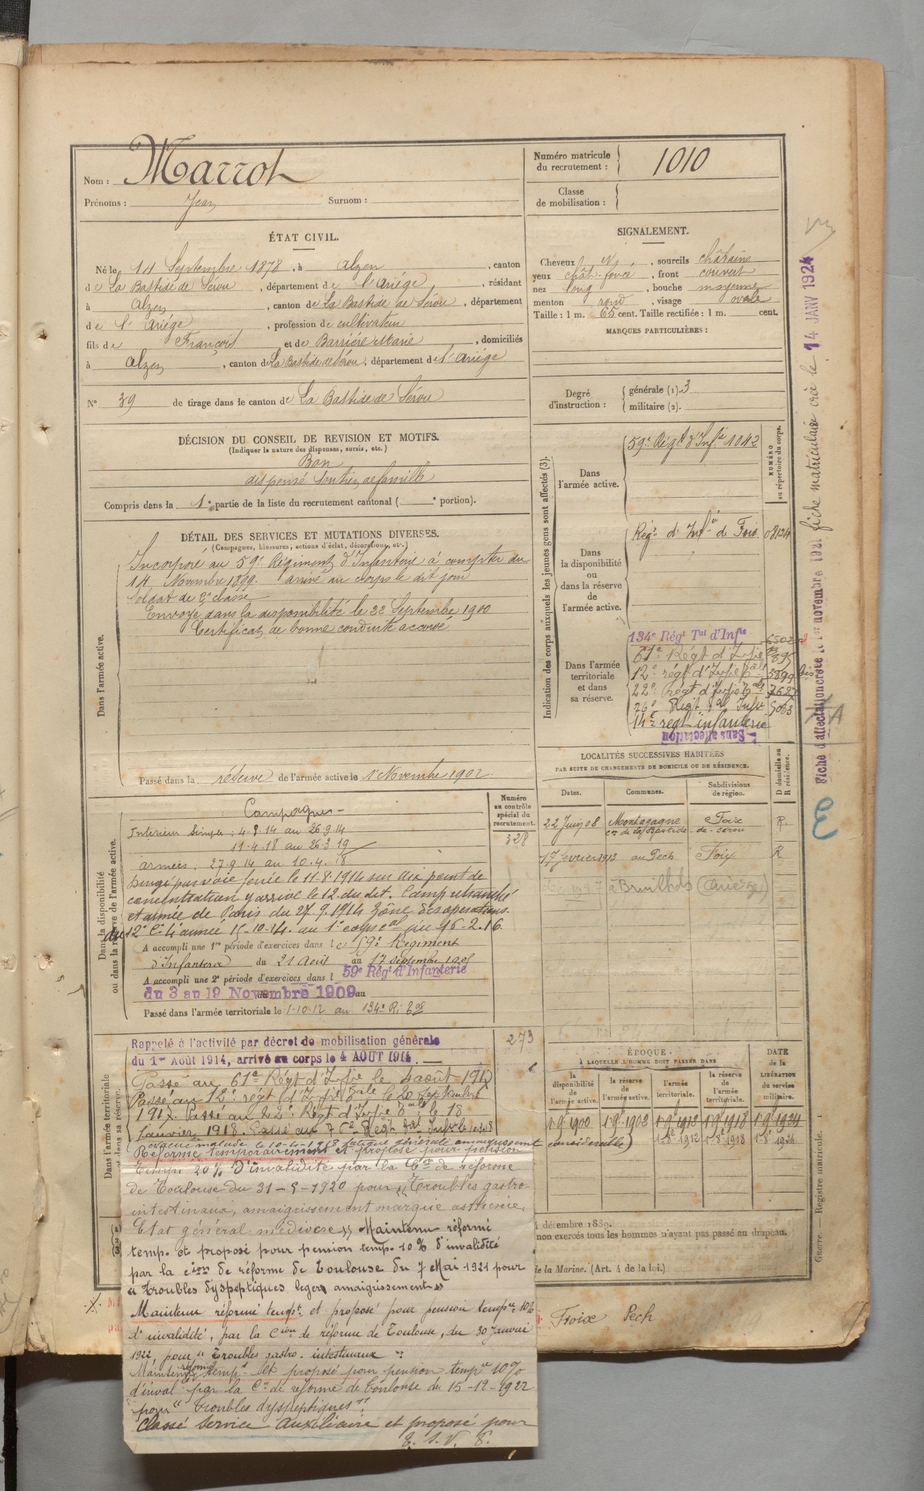 Nom : Marrot
Prénoms : Jean Surnom :
Numéro matricule du recrutement : 1010
Classe de mobilisation :
ÉTAT CIVIL.
Né le 14 Septembre 1878, à Alzen, canton
de La Bastide de Sérou, département de l'Ariège, résidant
à Alzen, canton de La Bastide de Sérou, département
de l'Ariège, profession de cultivateur
fils de François et de Barrière Marie, domiciliés
à Alzen, canton de La Bastide de Sérou, département de l'Ariège
N° 39 de tirage dans le canton de La Bastide de Sérou
SIGNALEMENT.
Cheveux N, sourcils châtains
yeux chât. foncé, front couvert
nez long, bouche moyenne
menton rond, visage ovale
Taille : 1 m. 65 cent. Taille rectifiée : 1 m. cent.
MARQUES PARTICULIÈRES :
Degré d'instruction : générale (1). 3
militaire (2).
DÉCISION DU CONSEIL DE REVISION ET MOTIFS.
(Indiquer la nature des dispenses, sursis, etc.)
Bon
dispensé soutien de famille
Compris dans la 1e partie de la liste du recrutement cantonal ( e portion).
DÉTAIL DES SERVICES ET MUTATIONS DIVERSES.
(Campagnes, blessures, actions d'éclat, décorations, etc.)
Dans l'armée active.
Incorporé au 59e Régiment d'Infanterie à compter du
14 Novembre 1899. arrivé au corps le dit jour
soldat de 2e classe
Envoyé dans la disponibilité le 22 Septembre 1900
Certificat de bonne conduite accordé
Passé dans la réserve de l'armée active le 1er Novembre 1902
Indication des corps auxquels les jeunes gens sont affectés (3).
NUMÉRO au répertoire du corps.
Dans l'armée active.
59e Régt d'Infie 1042
Dans la disponibilité ou dans la réserve de l'armée active.
Régt d'Infie de Foix 08124
Dans l'armée territoriale et dans sa réserve.
134e Régt Tal d'Infie 6502
61e Régt d'Infie 395
12e régt d'Infie Tale 5899
22e Régt d'Infie Tale 7687
76e Régt Tal Infie 5063
14e régt infanterie
Sans affectation
LOCALITÉS SUCCESSIVES HABITÉES
PAR SUITE DE CHANGEMENTS DE DOMICILE OU DE RÉSIDENCE.
Dates. Communes. Subdivisions de région. D domicile ou R résidence.
22 Juin 08 Montagagne Foix R.
con de la Bastide de Sérou
1er février 1913 au Pech Foix R
Brulhols (Ariège)
Dans la disponibilité ou dans la réserve de l'armée active.
Numéro au contrôle spécial du recrutement.
328
Campagne
Intérieur Simple : 4.8.14 au 26.9.14
19.4.18 au 26.3.19
armées : 27.9.14 au 10.4.18
Dirigé par voie ferrée le 11.8.1914 sur un point de
concentration y arrivé le 12 du dit. Camp retranché
et armée de Paris du 27.9.1914 Zône des opérations.
A accompli une 1re période d'exercices dans le 59e Régiment
d'Infanterie du 21 Août au 17 septembre 1905
A accompli une 2e période d'exercices dans l 59e Régt d'Infanterie
du 3 au 19 Novembre 1909 au
Passé dans l'armée territoriale le 1-10-12 au 134e R.
Dans l'armée territoriale et dans sa réserve.
273
Rappelé à l'activité par décret de mobilisation générale
du 1er Août 1914, arrivé au corps le 4 AOUT 1914
Passé au 61e Régt d'Infie le 4 août 1917
Passé au 12e régt d'Infie Tale le 20 septembre
1917. Passé au 22e Régt d'Infie Tale le 18
Janvier 1918. Passé au 76e Régt Tal Infie le
évacué malade le 10-4-1918 fatigue générale amaigrissement considérable)
Réformé temporairement et proposé pour pension
temp. 20% d'invalidité par la Con de réforme
de Toulouse du 31-5-1920 pour "Troubles gastro-
intestinaux, amaigrissement marqué asthénie,
Etat général médiocre" Maintenu réformé
temp. et proposé pour pension temp. 10% d'invalidité
par la cion de réforme de Toulouse du 7 Mai 1921 pour
"Troubles dyspeptiques léger amaigrissement"
Maintenu réformé tempt et proposé pour pension tempre 10%
d'invalidité, par la Cion de réforme de Toulouse, du 30 Janvier
1922 pour "Troubles gastro-intestinaux"
Maintenu réformé temp. et proposé pour pension tempre 10%
d'inval. par la Cn de réforme de Toulouse du 15-12-1922
pour "Troubles dyspeptiques".
Classé Service Auxiliaire et proposé pour
ÉPOQUE
À LAQUELLE L'HOMME DOIT PASSER DANS
la disponibilité de l'armée active. la réserve de l'armée active. l'armée territoriale. la réserve de l'armée territoriale. DATE de la LIBÉRATION du service militaire.
décembre 1889.
non exercés tous les hommes n'ayant pas passé au drapeau.
de la Marine. (Art. 4 de la loi.)
Foix Pech
Guerre. — Registre matricule.
Fiche d'affectation créée le 1er novembre 1921 fiche matriculaire crée le 14 JANV 1924